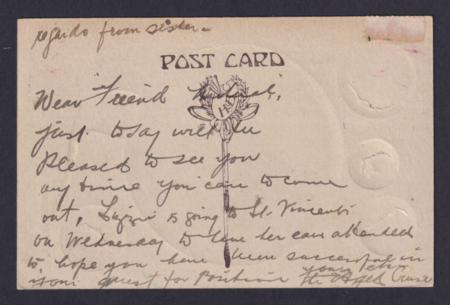 regards from sister -
POST CARD
Dear Friend
just to say will be
pleased to see you
any time you care to come
out, Lizzie is going to St. Vincents
on Wednesday to have her ear attended
to, hope you have been successful in
your quest for Position